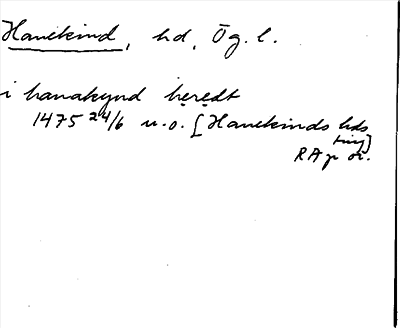 Hanekind, hd, Ög. l.
i hanakynd heredt
1475 24/6 u.o. [Hanekinds hds
ting]
RAp or.